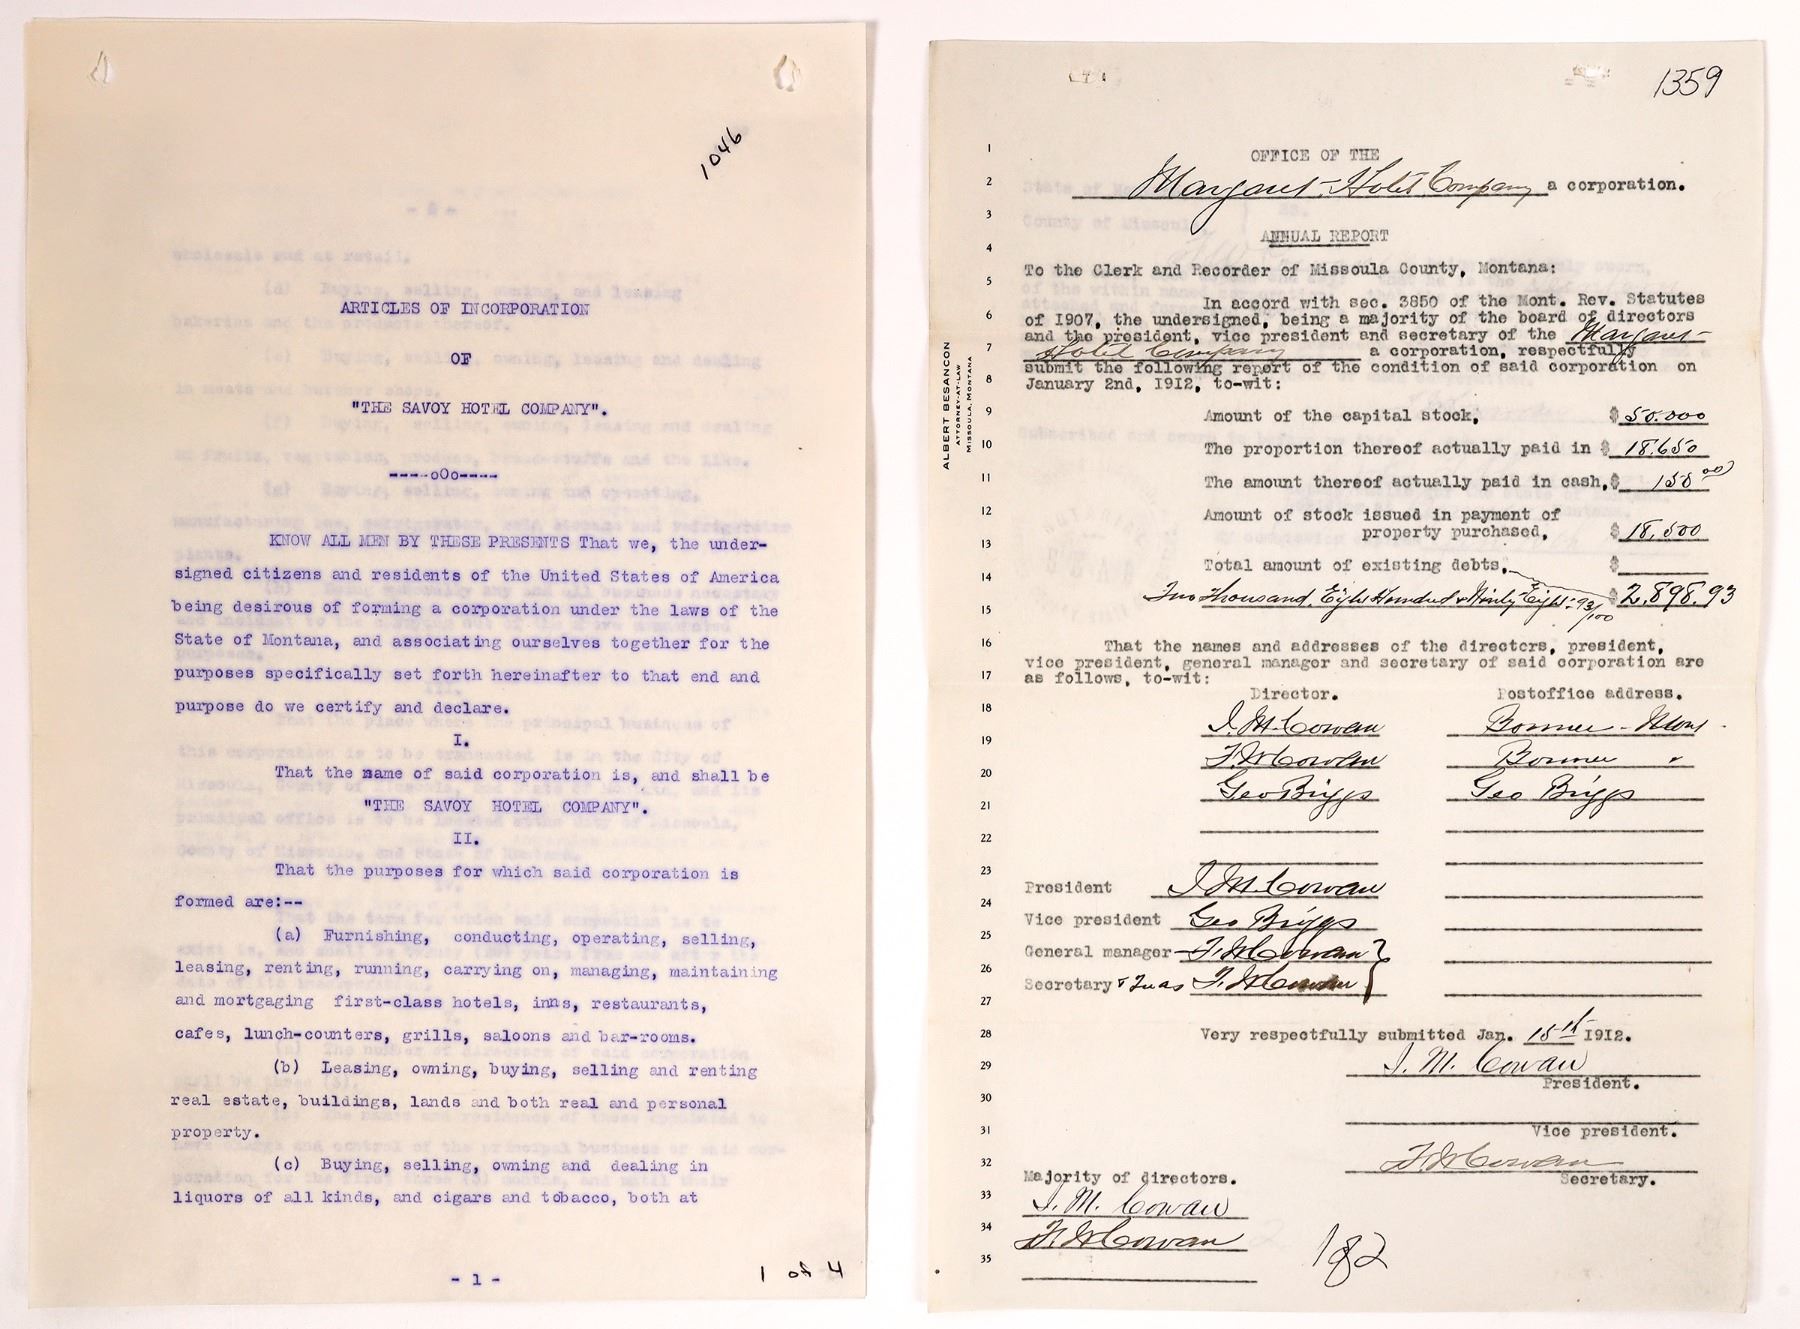 1046
ARTICLES OF INCORPORATION
OF
"THE SAVOY HOTEL COMPANY".
----oOo----
KNOW ALL MEN BY THESE PRESENTS That we, the under-
signed citizens and residents of the United States of America
being desirous of forming a corporation under the laws of the
State of Montana, and associating ourselves together for the
purposes specifically set forth hereinafter to that end and
purpose do we certify and declare.
I.
That the name of said corporation is, and shall be
"THE SAVOY HOTEL COMPANY".
II.
That the purposes for which said corporation is
formed are:--
(a) Furnishing, conducting, operating, selling,
leasing, renting, running, carrying on, managing, maintaining
and mortgaging first-class hotels, inns, restaurants,
cafes, lunch-counters, grills, saloons and bar-rooms.
(b) Leasing, owning, buying, selling and renting
real estate, buildings, lands and both real and personal
property.
(c) Buying, selling, owning and dealing in
liquors of all kinds, and cigars and tobacco, both at
- 1 -
1 of 4
1359
ALBERT BESANCON
ATTORNEY-AT-LAW
MISSOULA, MONTANA
1 OFFICE OF THE
2 Margaret Hotel Company a corporation.
3
4 ANNUAL REPORT
5 To the Clerk and Recorder of Missoula County, Montana:
In accord with sec. 3850 of the Mont. Rev. Statutes
6 of 1907, the undersigned, being a majority of the board of directors
and the president, vice president and secretary of the Margaret
7 Hotel Company a corporation, respectfully
submit the following report of the condition of said corporation on
8 January 2nd, 1912, to-wit:
9 Amount of the capital stock, $ 50.000
10 The proportion thereof actually paid in $ 18.650
11 The amount thereof actually paid in cash, $ 150 00)
12 Amount of stock issued in payment of
13 property purchased, $ 18,500
14 Total amount of existing debts, $
15 Two Thousand, Eight Hundred & Ninty Eight - 93/100 $ 2,898.93
16 That the names and addresses of the directors, president,
vice president, general manager and secretary of said corporation are
17 as follows, to-wit:
18 Director. Postoffice address.
19 I. M. Cowan Bonner - Mont
20 F. M Cowan Bonner "
21 Geo Briggs Geo Briggs
22
23
24 President I. M. Cowan
Vice president Geo Briggs
25 General manager F. M Cowan }
26 Secretary & Treas F. M Cowan
27
28 Very respectfully submitted Jan. 15th 1912.
29 I. M. Cowan
President.
30
31 Vice president.
32 F. M Cowan
Majority of directors. Secretary.
33 I. M. Cowan
34 F. M Cowan
35
1 of 2